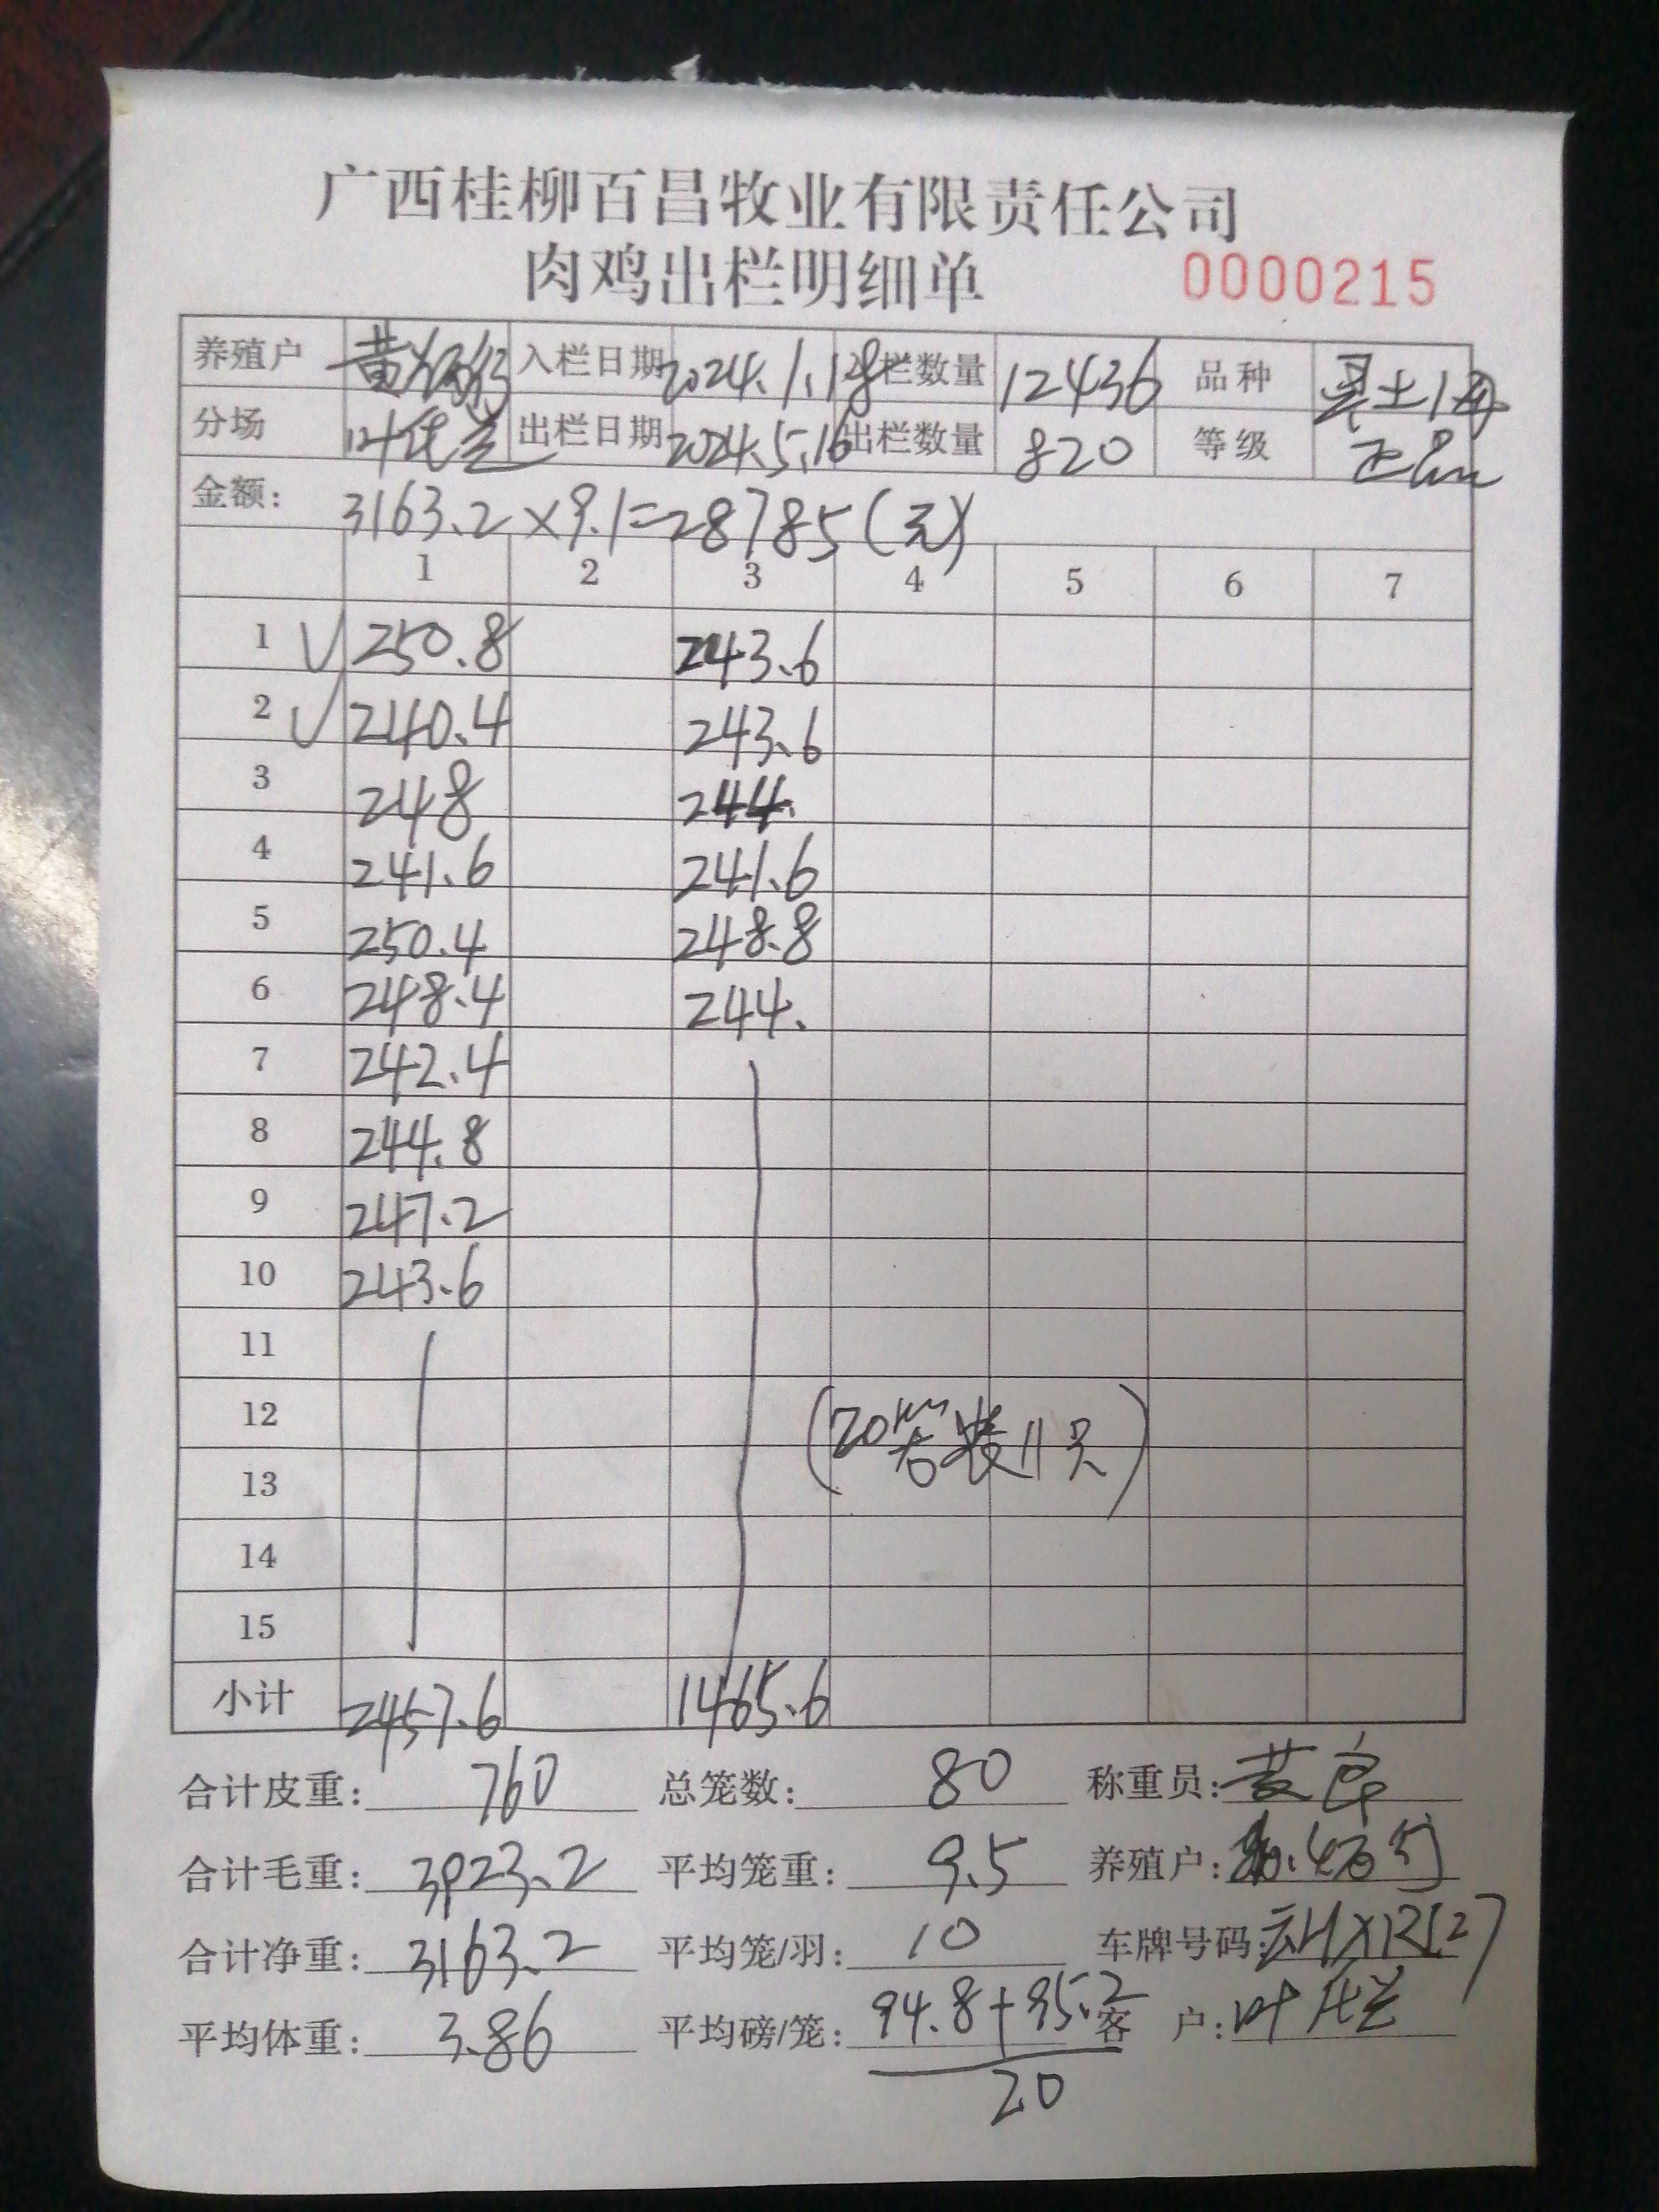 广西桂柳百昌牧业有限责任公司
肉鸡出栏明细单 0000215
养殖户 黄 入栏日期 2024.1.18 入栏数量 12436 品种 土1母
分场 叶 出栏日期 2024.5.16 出栏数量 820 等级 正品
金额: 3163.2×9.1=28785(元)
1 2 3 4 5 6 7
1 √ 250.8 243.6
2 √ 240.4 243.6
3 248 244.
4 241.6 241.6
5 250.4 248.8
6 248.4 244.
7 242.4
8 244.8
9 247.2
10 243.6
11
12 (20 装11只)
13
14
15
小计 2457.6 1465.6
合计皮重: 760 总笼数: 80 称重员:
合计毛重: 3923.2 平均笼重: 9.5 养殖户:
合计净重: 3163.2 平均笼/羽: 10 车牌号码:
平均体重: 3.86 平均磅/笼: 94.8+95.2 客 户: 叶
20